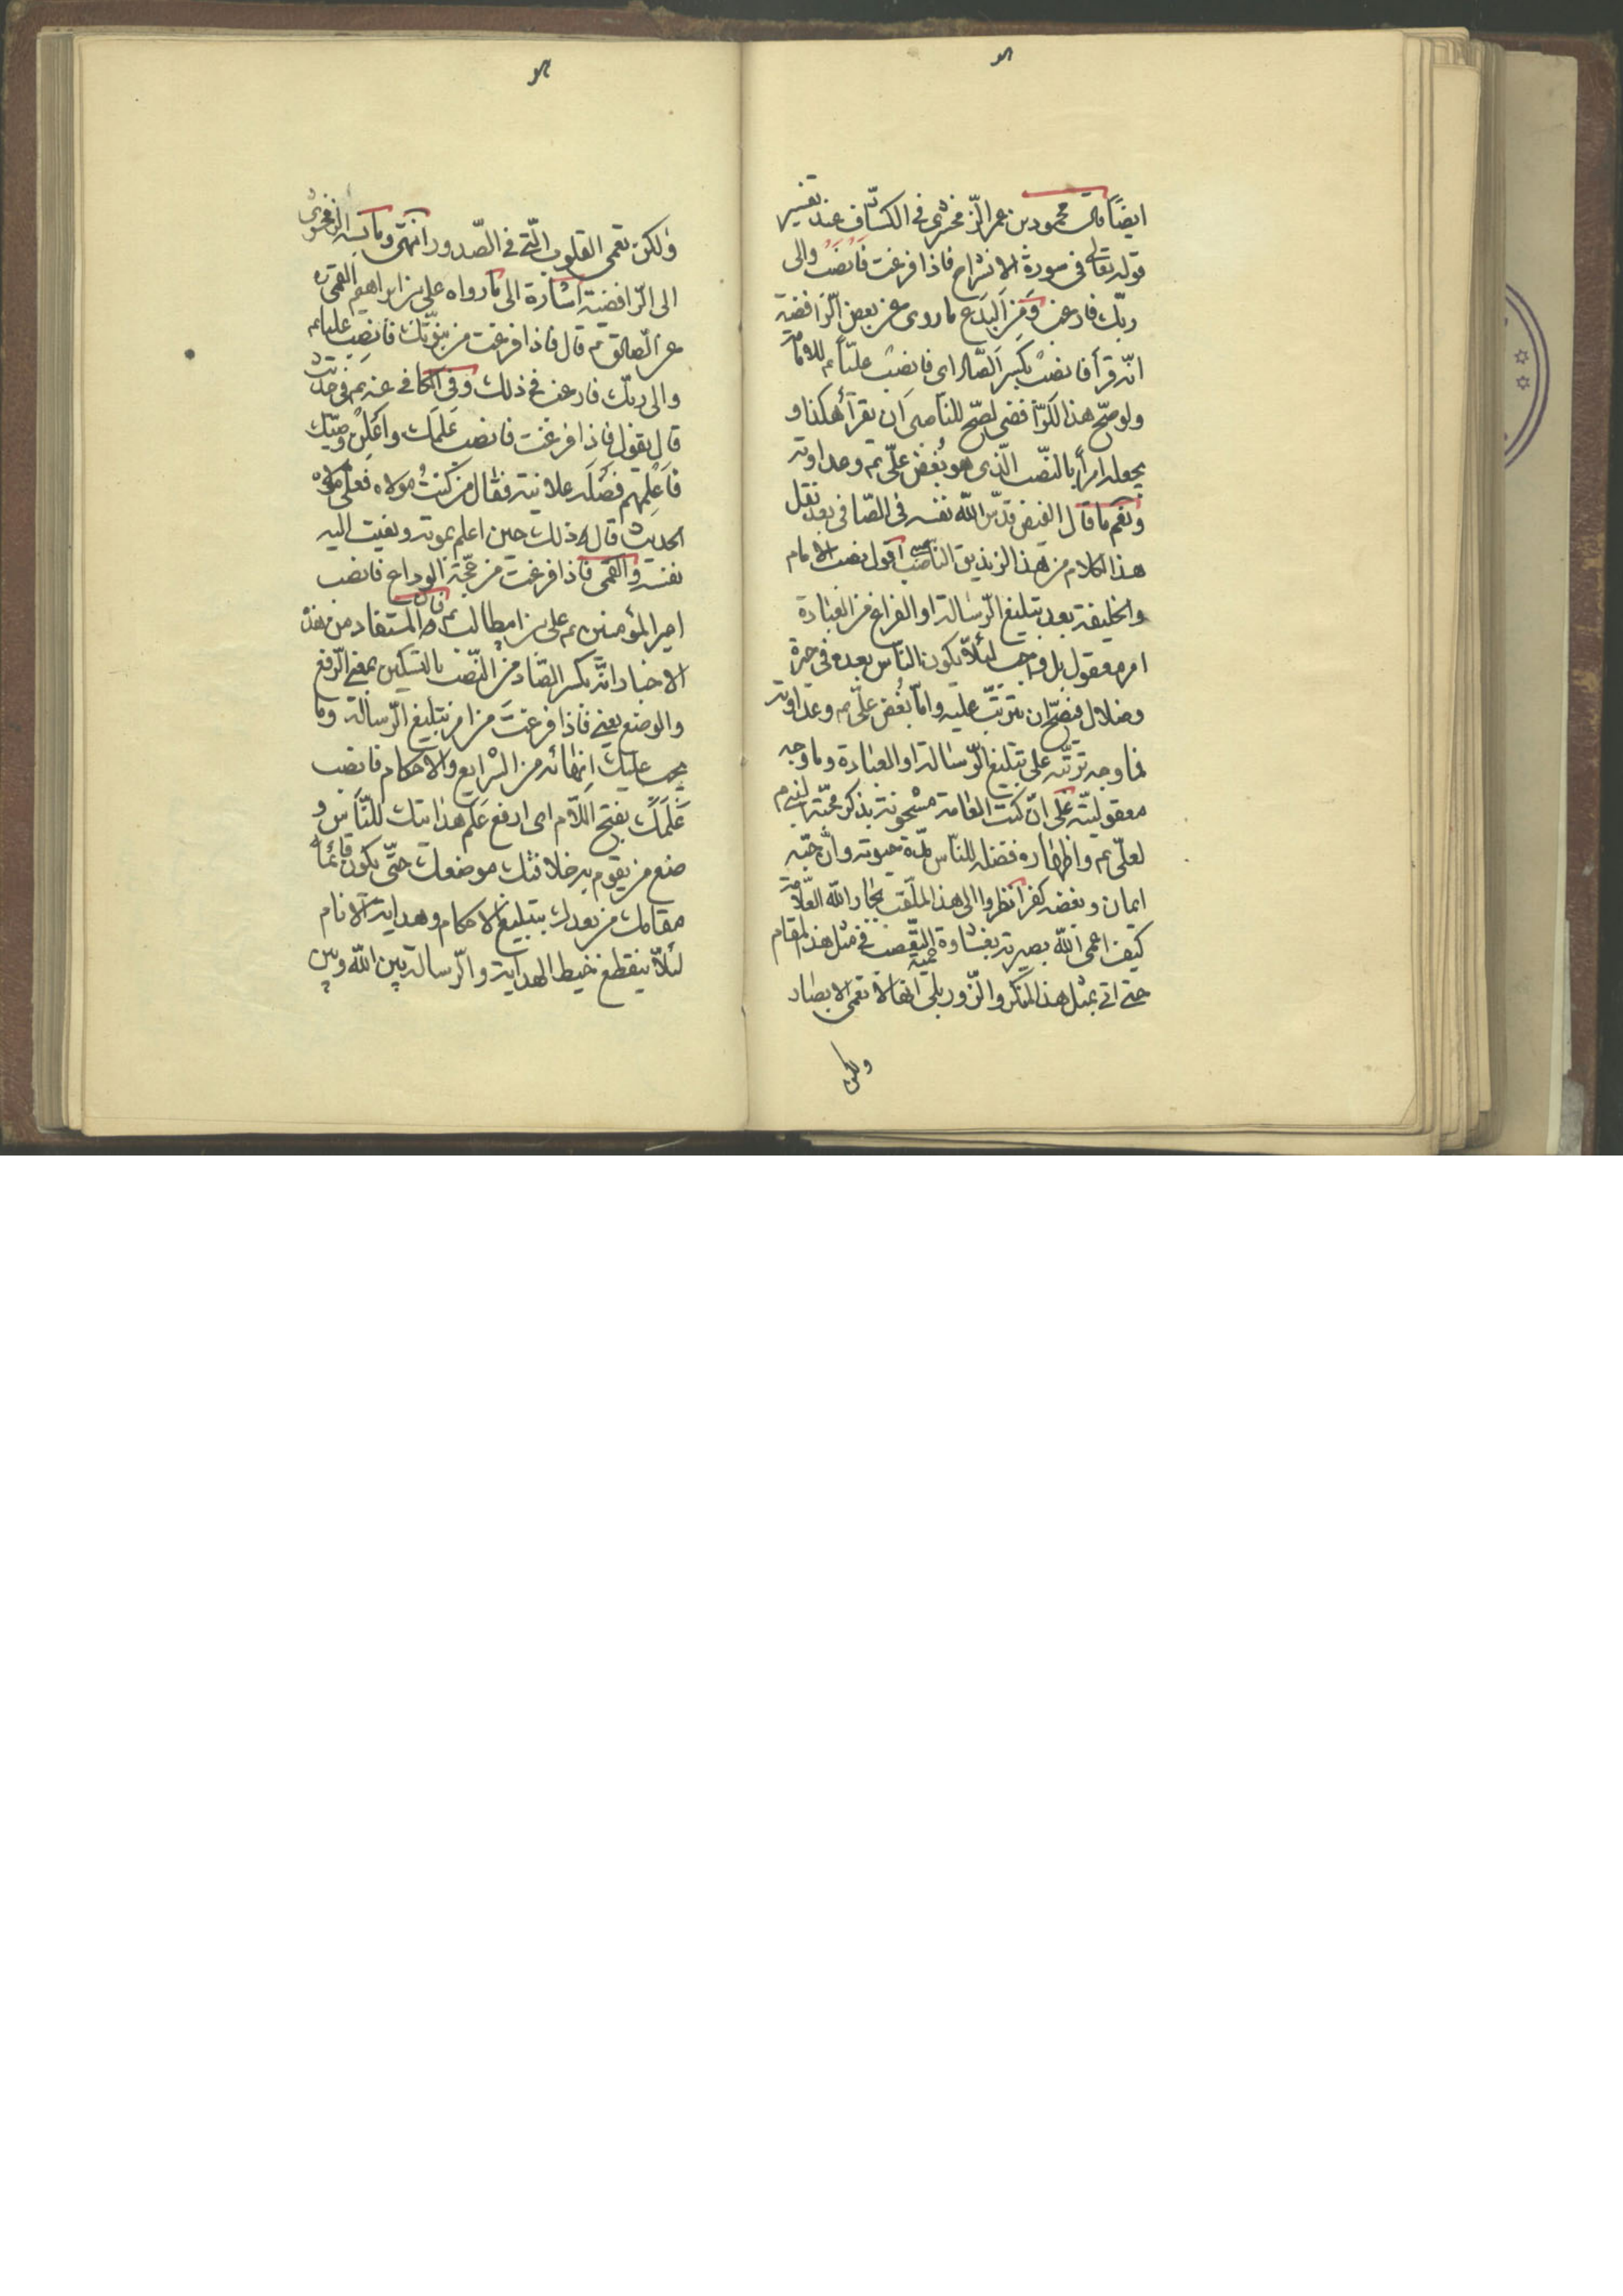 ايضًا قال محمود بن عمر الزّمخشري في الكشّاف عند تفسير
قوله تعالى في سورة الانشراح فاذا فرغت فانصب والى
ربّك فارغب ومن البدع ما روى عن بعض الرّافضية
انّه قرأ فانصب بكسر الصّاد اى فانصب عليّا ع للامامة
ولو صحّ هذا للرّافضى لصحّ للناصبى ان يقرأ هكذا و
يجعله امرًا بالنّصب الّذى هو بُغض علّى ع وعداوته
ونعم ما قال الفيض قدّس اللّه نفسه فى الصّافى بعد نقل
هذا الكلام من هذا الزنديق الناصبى اقول نصب الامام
والخليفة بعد تبليغ الرّسالة او الفراغ من العبادة
امر معقول بل واجب لئلّا يكون النّاس بعده فى حيرة
وضلال فيصحّ ان يترتّب عليه وامّا بُغض علّى ع وعداوته
فما وجه ترتّبه على تبليغ الرّسالة او العبادة وما وجه
معقوليّته على انّ كتب العامة مشحونة بذكر محبّة النبى ص
لعلّى ع واظهاره فضله للنّاس مدّة حيوته وانّ حبّه
ايمان وبغضه كفر انظروا الى هذا الملّقب بجار اللّه العلّامة
كيف اعمى اللّه بصيرته بغشاوة حميّة التعّصب فى مثل هذا المقام
حتى اتى بمثل هذا المنكر والزّور بلى انها لا تعمى الابصار
ولكن
ولكن تعمى القلوب الّتى فى الصّدور انتهى وما نسبه الزمخشرى
الى الرّافضية اشارة الى ما رواه على بن ابراهيم القمى ره
عن الصّادق ع قال فاذا فرغت من نبوّتك فانصب عليا ع
والى ربّك فارغب فى ذلك وفى الكافى عنه ع فى حديث
قال يقول فاذا فرغت فانصب عَلَمَك واَعْلِن وصيّك
فاَعْلِمهم فَضْلَه علانية فقال من كنتُ مولاه فعلى مولاه
الحديث قال و ذلك حين اعلم بموته ونعيت اليه
نفسه والقمى فاذا فرغت من حجّة الوداع فانصب
امير المؤمنين ع على بن ابيطالب ع قال ظ المستفاد من هذه
الاخبار انّه بكسر الصّاد من النّصب بالتسكين بمعنى الرّفع
والوضع يعنى فاذا فرغتَ من امر تبليغ الرّسالة وما
يجب عليك انهائه من الشرايع والاحكام فانصب
عَلَمَك بفتح اللّام اى ارفع عَلَم هدايتك للنّاس و
ضع من يقوم به خلافتك موضعك حتّى يكون قائما
مقامك من بعدك بتبليغ الاحكام وهداية الانام
لئلّا ينقطع خيط الهداية والرّسالة بين اللّه وبين